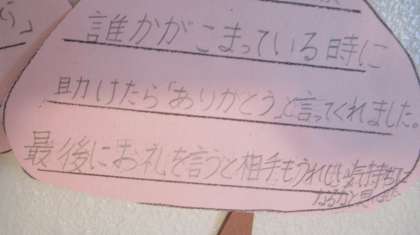 誰かがこまっている時に
助けたら「ありがとう」と言ってくれました。
最後にお礼を言うと相手もうれしい気持ちに
なるなと思